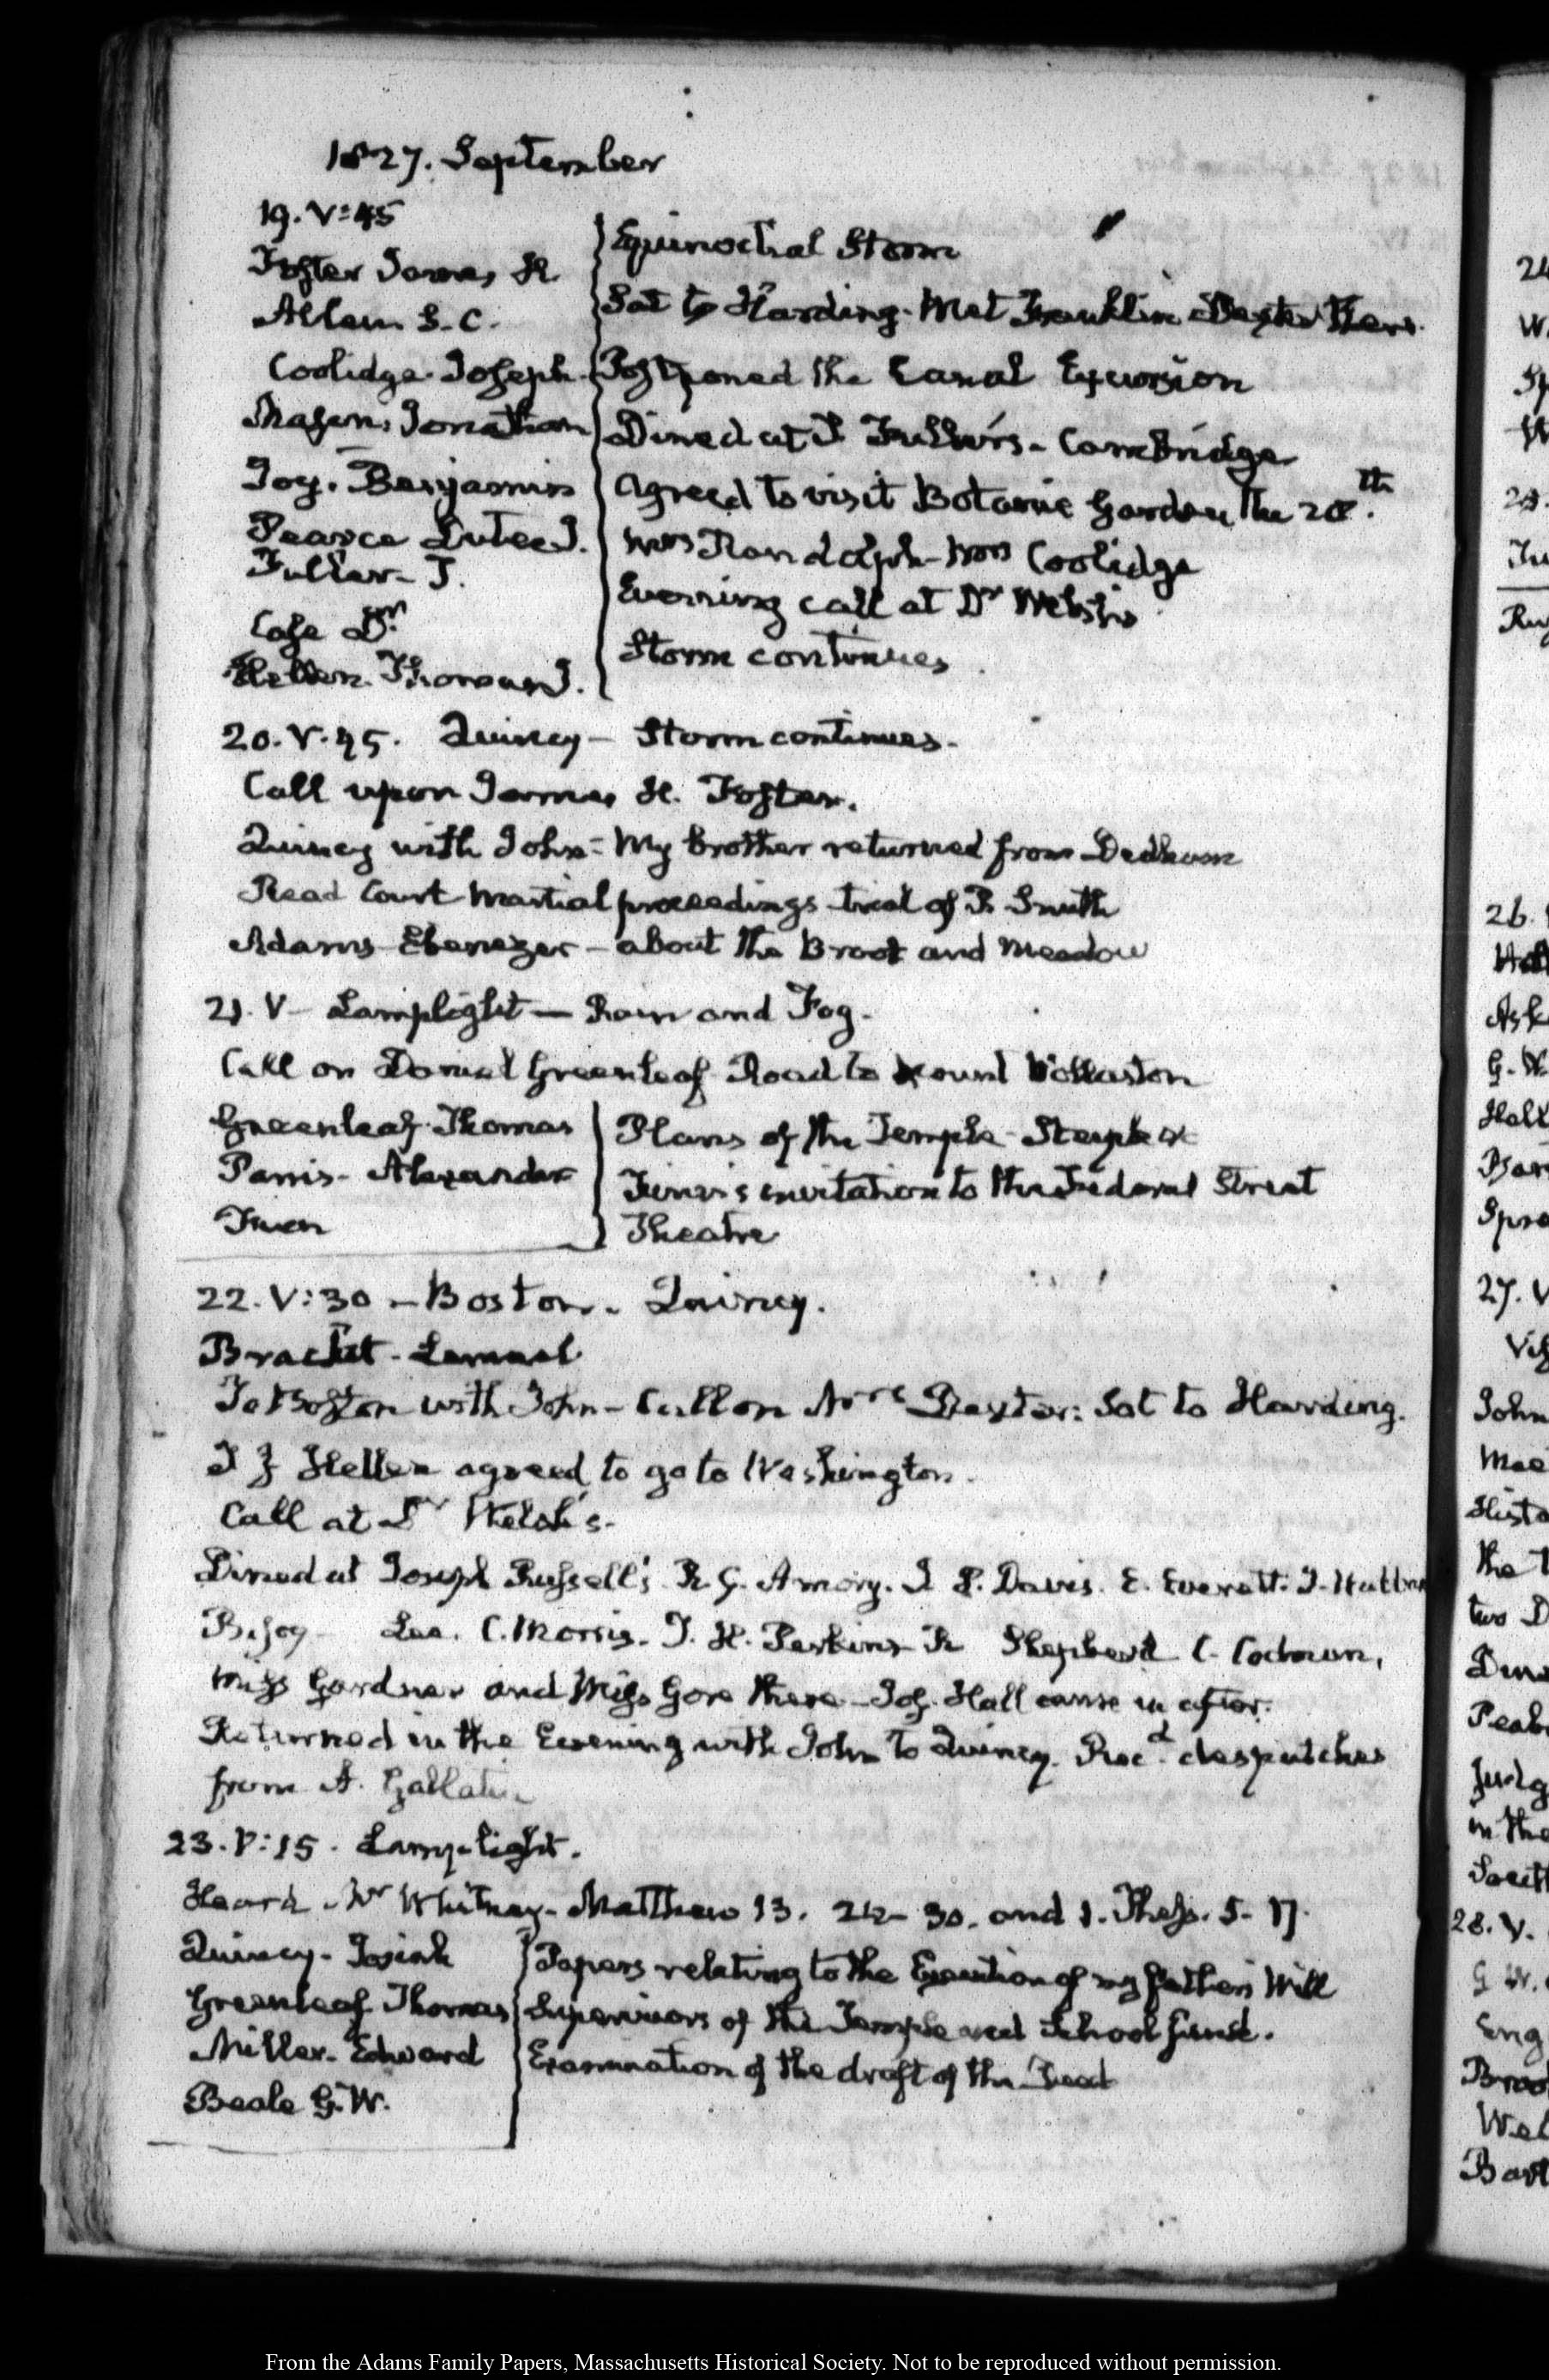 1827. September
19. V:45
Foster James H.
Allen S. C.
Coolidge. Joseph
Mason. Jonathan
Joy. Benjamin
Pearce Dutee J.
Fuller- T.
Case Dr.
Hellen. Thomas J.
Equinoctial Storm
Sat to Harding. Met Franklin Dexter there.
Postponed the Canal Excursion
Dined at T Fuller's- Cambridge
agreed to visit Botanic Garden the 28th.
Mrs Randolph- Mrs Coolidge
Evening call at Dr Welsh's
Storm continues
20. V.45. Quincy- Storm continues.
Call upon James H. Foster.
Quincy with John- My brother returned from Dedham
Read Court Martial proceedings trial of Smith
Adams- Ebenezer- about the Brook and Meadow
21. V- Lamplight- Rain and Fog.
Call on Daniel Greenleaf Road to Mount Wollaston
Greenleaf. Thomas
Parris- Alexander
Finn
Plans of the Temple
Finn's invitation to the Federal Street
Theatre
22. V:30- Boston- Quincy.
Brackett- Lemuel
To Boston with John- Call on Mrs Dexter: Sat to Harding.
T J Hellen agreed to go to Washington.
Call at Dr Welsh's.
Dined at Joseph Russell's. R. G. Amory. I. P. Davis. E. Everett.
B. Joy- Lee. C. Morris. T. H. Perkins- R Shepherd C. Codman,
Miss Gardner and Miss Gore there- Jos. Hall came in after.
Returned in the Evening with John to Quincy. Recd. despatches
from A. Gallatin
23. V:15. Lamp-light.
Heard Mr Whitney- Matthew 13. 24- 30. and 1. Thess. 5- 17.
Quincy- Josiah
Greenleaf Thomas
Miller- Edward
Beale G. W.
Papers relating to the Execution of my father's Will
Supervisors of the Temple and School fund.
Examination of the draft of the Deed
From the Adams Family Papers, Massachusetts Historical Society. Not to be reproduced without permission.